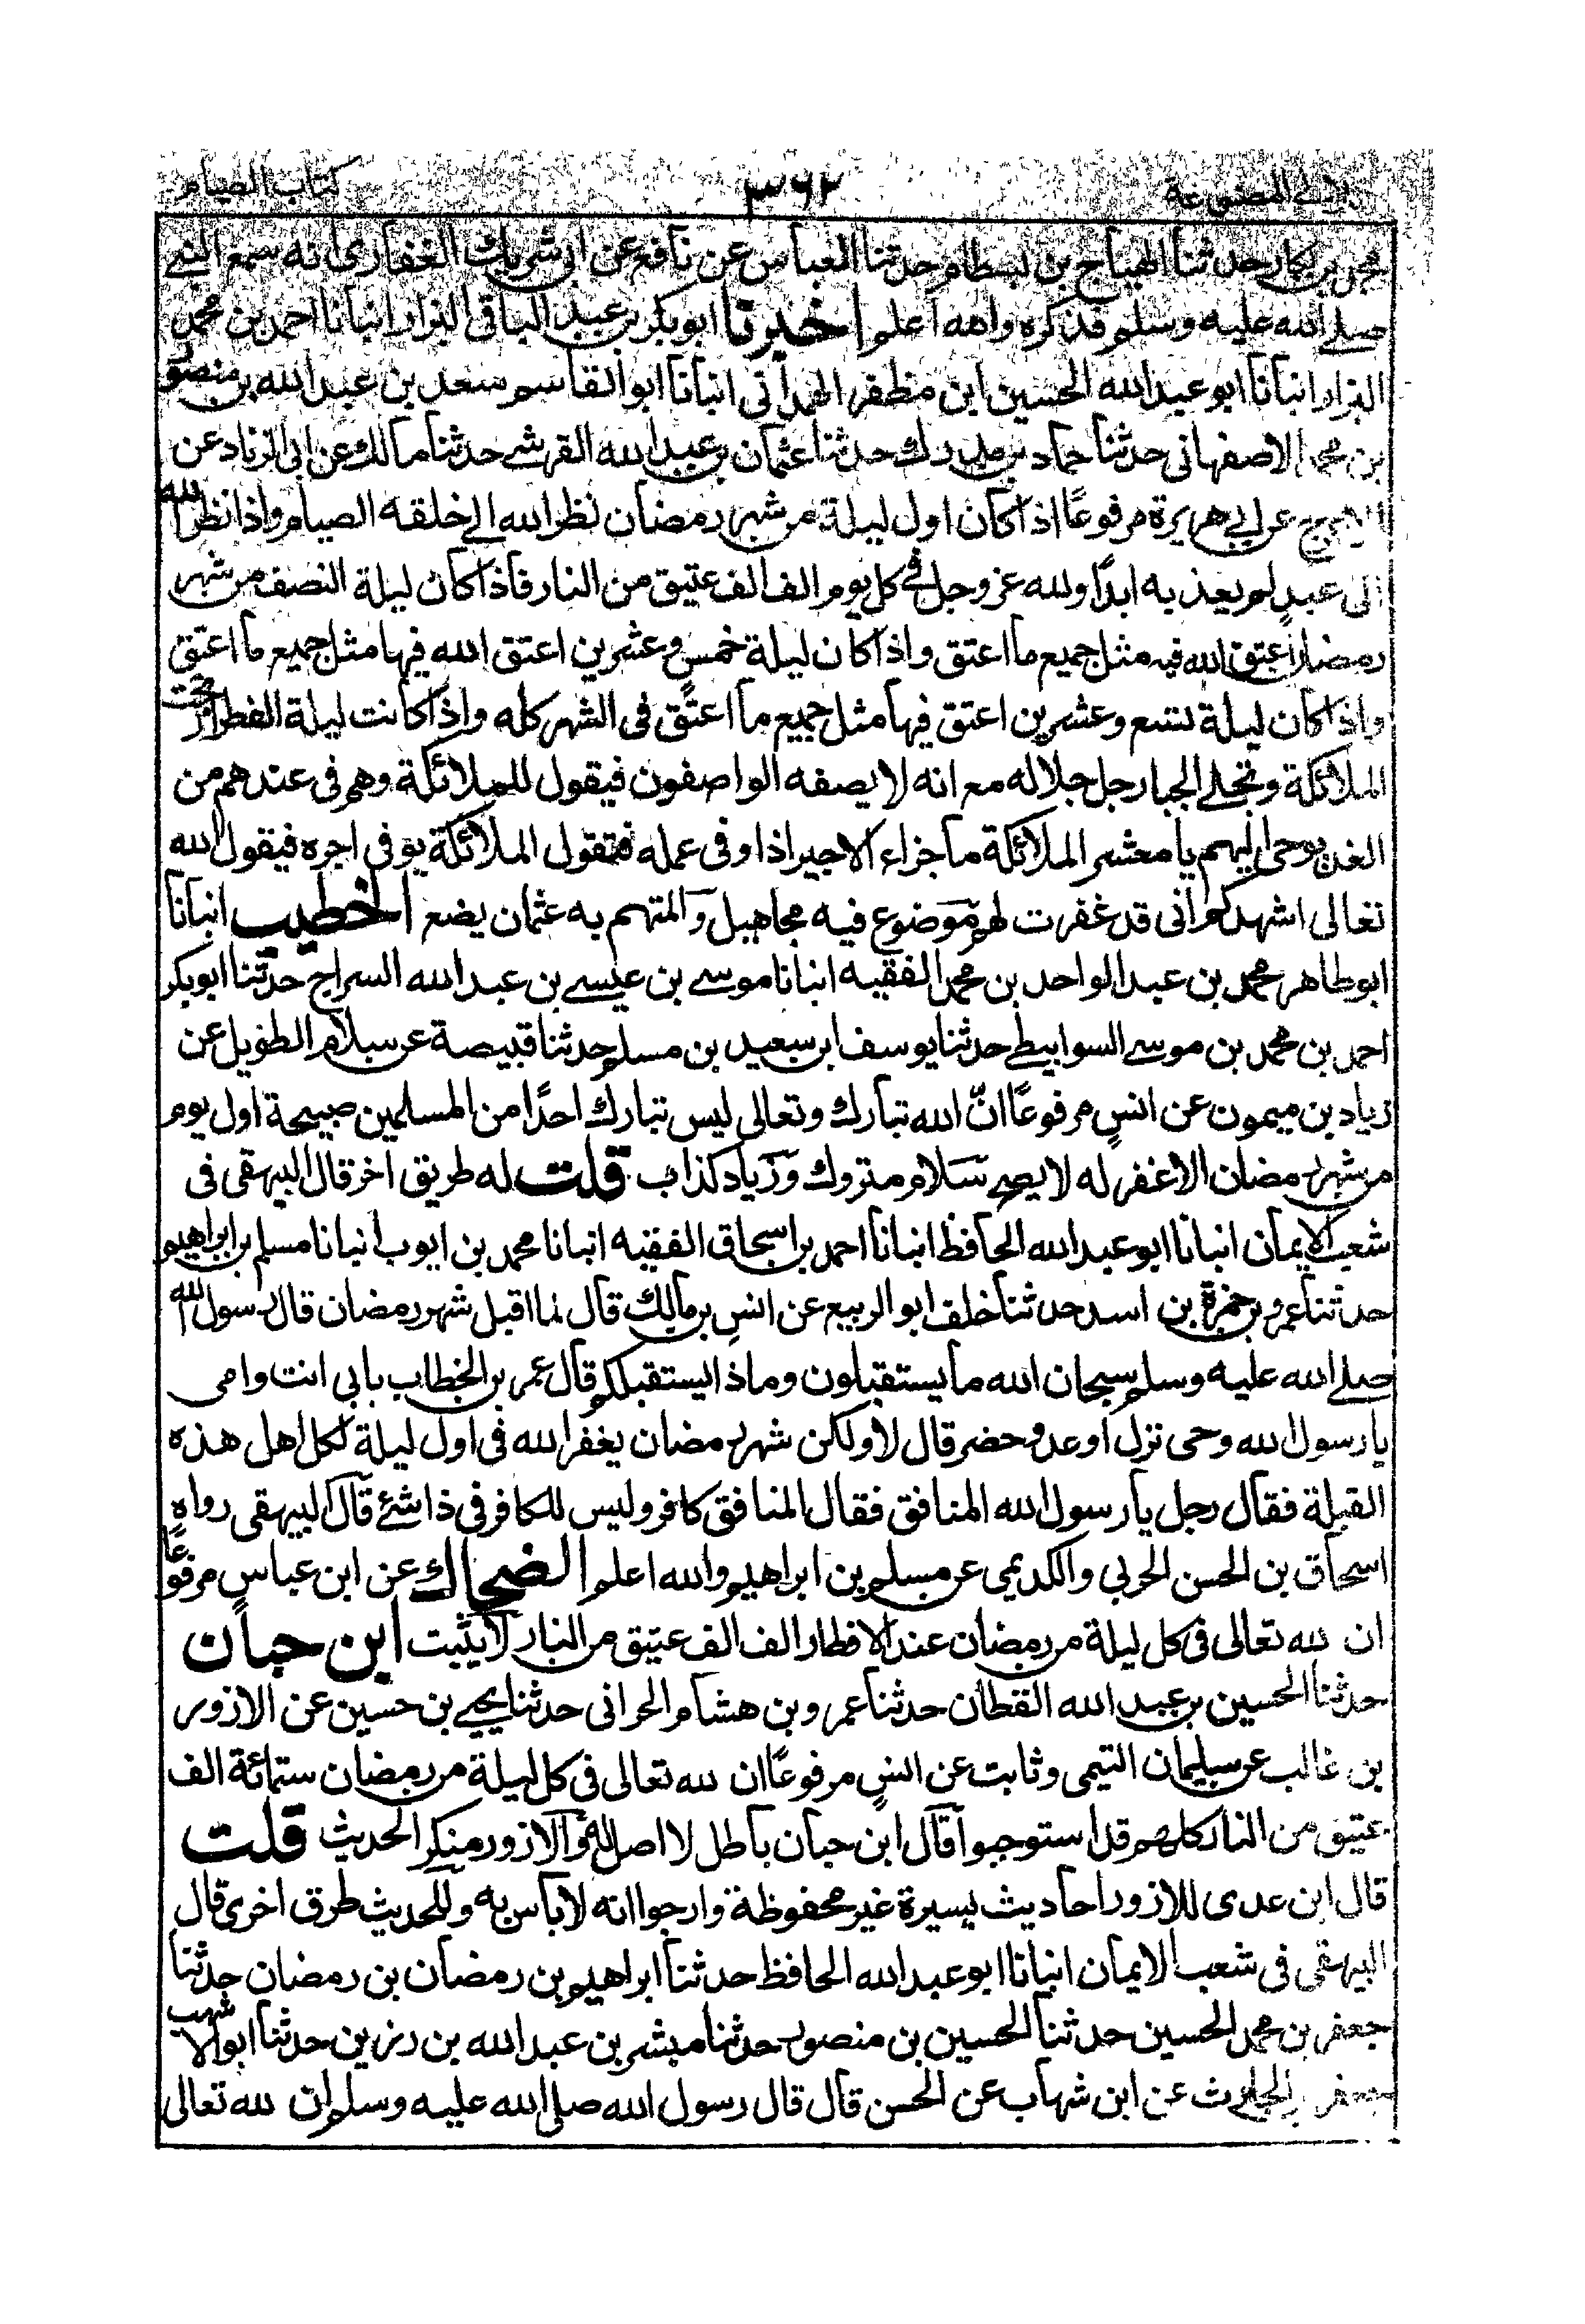 كتاب الصيام ٣٦٢ المصنوعة
محمد بن بكار حدثنا الهياج بن بسطام حدثنا العباس عن نافع عن ابى شريك الغفارى انه سمع النبے
صلے الله عليه وسلم فذكره والله اعلم اخبرنا ابو بكر بن عبد الباقى البزار انبانا احمد بن محمد
البزار انبانا ابو عبد الله الحسين ابن مظفر الهمدانى انبانا ابو القاسم سعد بن عبد الله بن منصور
بن محمد الاصفهانى حدثنا حماد بن مدرك حدثنا عثمان بن عبد الله القرشے حدثنا مالك عن ابى الزناد عن
الاعرج عن ابے هريرة مرفوعًا اذا كان اول ليلة من شهر رمضان نظر الله الے خلقه الصيام واذا نظر الله
الى عبدٍ لم يعذبه ابدًا ولله عز وجل فے كل يوم الف الف عتيق من النار فاذا كان ليلة النصف من شهر
رمضان اعتق الله فيه مثل جميع ما اعتق واذا كان ليلة خمس وعشرين اعتق الله فيها مثل جميع ما اعتق
واذا كان ليلة تسع وعشرين اعتق فيها مثل جميع ما اعتق فى الشهر كله واذا كانت ليلة الفطر ارتجت
الملائكة وتجلے الجبار جل جلاله مع انه لا يصفه الواصفون فيقول للملائكة وهم فى عندهم من
الغد يوحى اليهم يا معشر الملائكة ما جزاء الاجير اذا وفى عمله فتقول الملائكة يوفى اجره فيقول الله
تعالى اشهدكم انى قد غفرت لهم موضوع فيه مجاهيل والمتهم به عثمان يضع الخطيب انبانا
ابو طاهر محمد بن عبد الواحد بن محمد الفقيه انبانا موسے بن عيسے بن عبد الله السراج حدثنا ابو بكر
احمد بن محمد بن موسے السوابيطے حدثنا يوسف ابن سعيد بن مسلم حدثنا قبيصة عن سلام الطويل عن
زياد بن ميمون عن انسٍ مرفوعًا انّ الله تبارك وتعالى ليس تبارك احدًا من المسلمين صبيحة اول يوم
من شهر رمضان الا غفر له لا يصح سلام متروك وزياد كذاب قلت له طريق اخر قال البيهقى فى
شعب الايمان انبانا ابو عبد الله الحافظ انبانا احمد بن اسحاق الفقيه انبانا محمد بن ايوب انبانا مسلم بن ابراهيم
حدثنا عمرو بن حمزة بن اسد حدثنا خلف ابو الربيع عن انسِ بن مالك قال لما اقبل شهر رمضان قال رسول الله
صلے الله عليه وسلم سبحان الله ما يستقبلون وماذا يستقبلكم قال عمر بن الخطاب بابى انت وامى
يا رسول الله وحى نزل او عدو حضر قال لا ولكن شهر رمضان يغفر الله فى اول ليلة لكل اهل هذه
القبلة فقال رجل يا رسول الله المنافق فقال المنافق كافر وليس للكافر فى ذا شئے قال البيهقى رواه
اسحاق بن الحسن الحربي والكديمى عن مسلم بن ابراهيم والله اعلم الضحاك عن ابن عباسٍ مرفوعًا
ان لله تعالى فى كل ليلة من رمضان عند الافطار الف الف عتيق من النار لا يثبت ابن حبان
حدثنا الحسين بن عبد الله القطان حدثنا عمرو بن هشام الحرانى حدثنا يحيے بن حسين عن الازور
بن غالب عن سليمان التيمى وثابت عن انسٍ مرفوعًا ان لله تعالى فى كل ليلة من رمضان ستمائة الف
عتيق من النار كلهم قد استوجبوا قال ابن حبان باطل لا اصل له والازور منكر الحديث قلت
قال ابن عدى للازور احاديث يسيرة غير محفوظة وارجوا انه لا باس به وللحديث طرق اخرى قال
البيهقى فى شعب الايمان انبانا ابو عبد الله الحافظ حدثنا ابراهيم بن رمضان بن رمضان حدثنا
جعفر بن محمد الحسين حدثنا الحسين بن منصور حدثنا مبشر بن عبد الله بن رزين حدثنا ابو الاشهب
جعفر بن الحارث عن ابن شهاب عن الحسن قال قال رسول الله صلى الله عليه وسلم ان لله تعالى